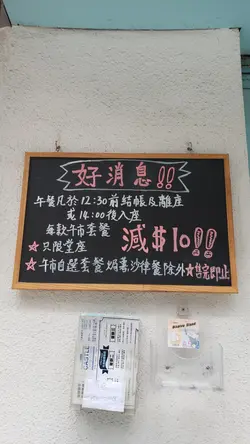 好消息!!
午餐凡於12:30前結帳及離座
或14:00後入座
每款午市套餐
減$10!!
☆只限堂座
☆午市自選套餐、焗薯、沙律餐除外
☆售完即止